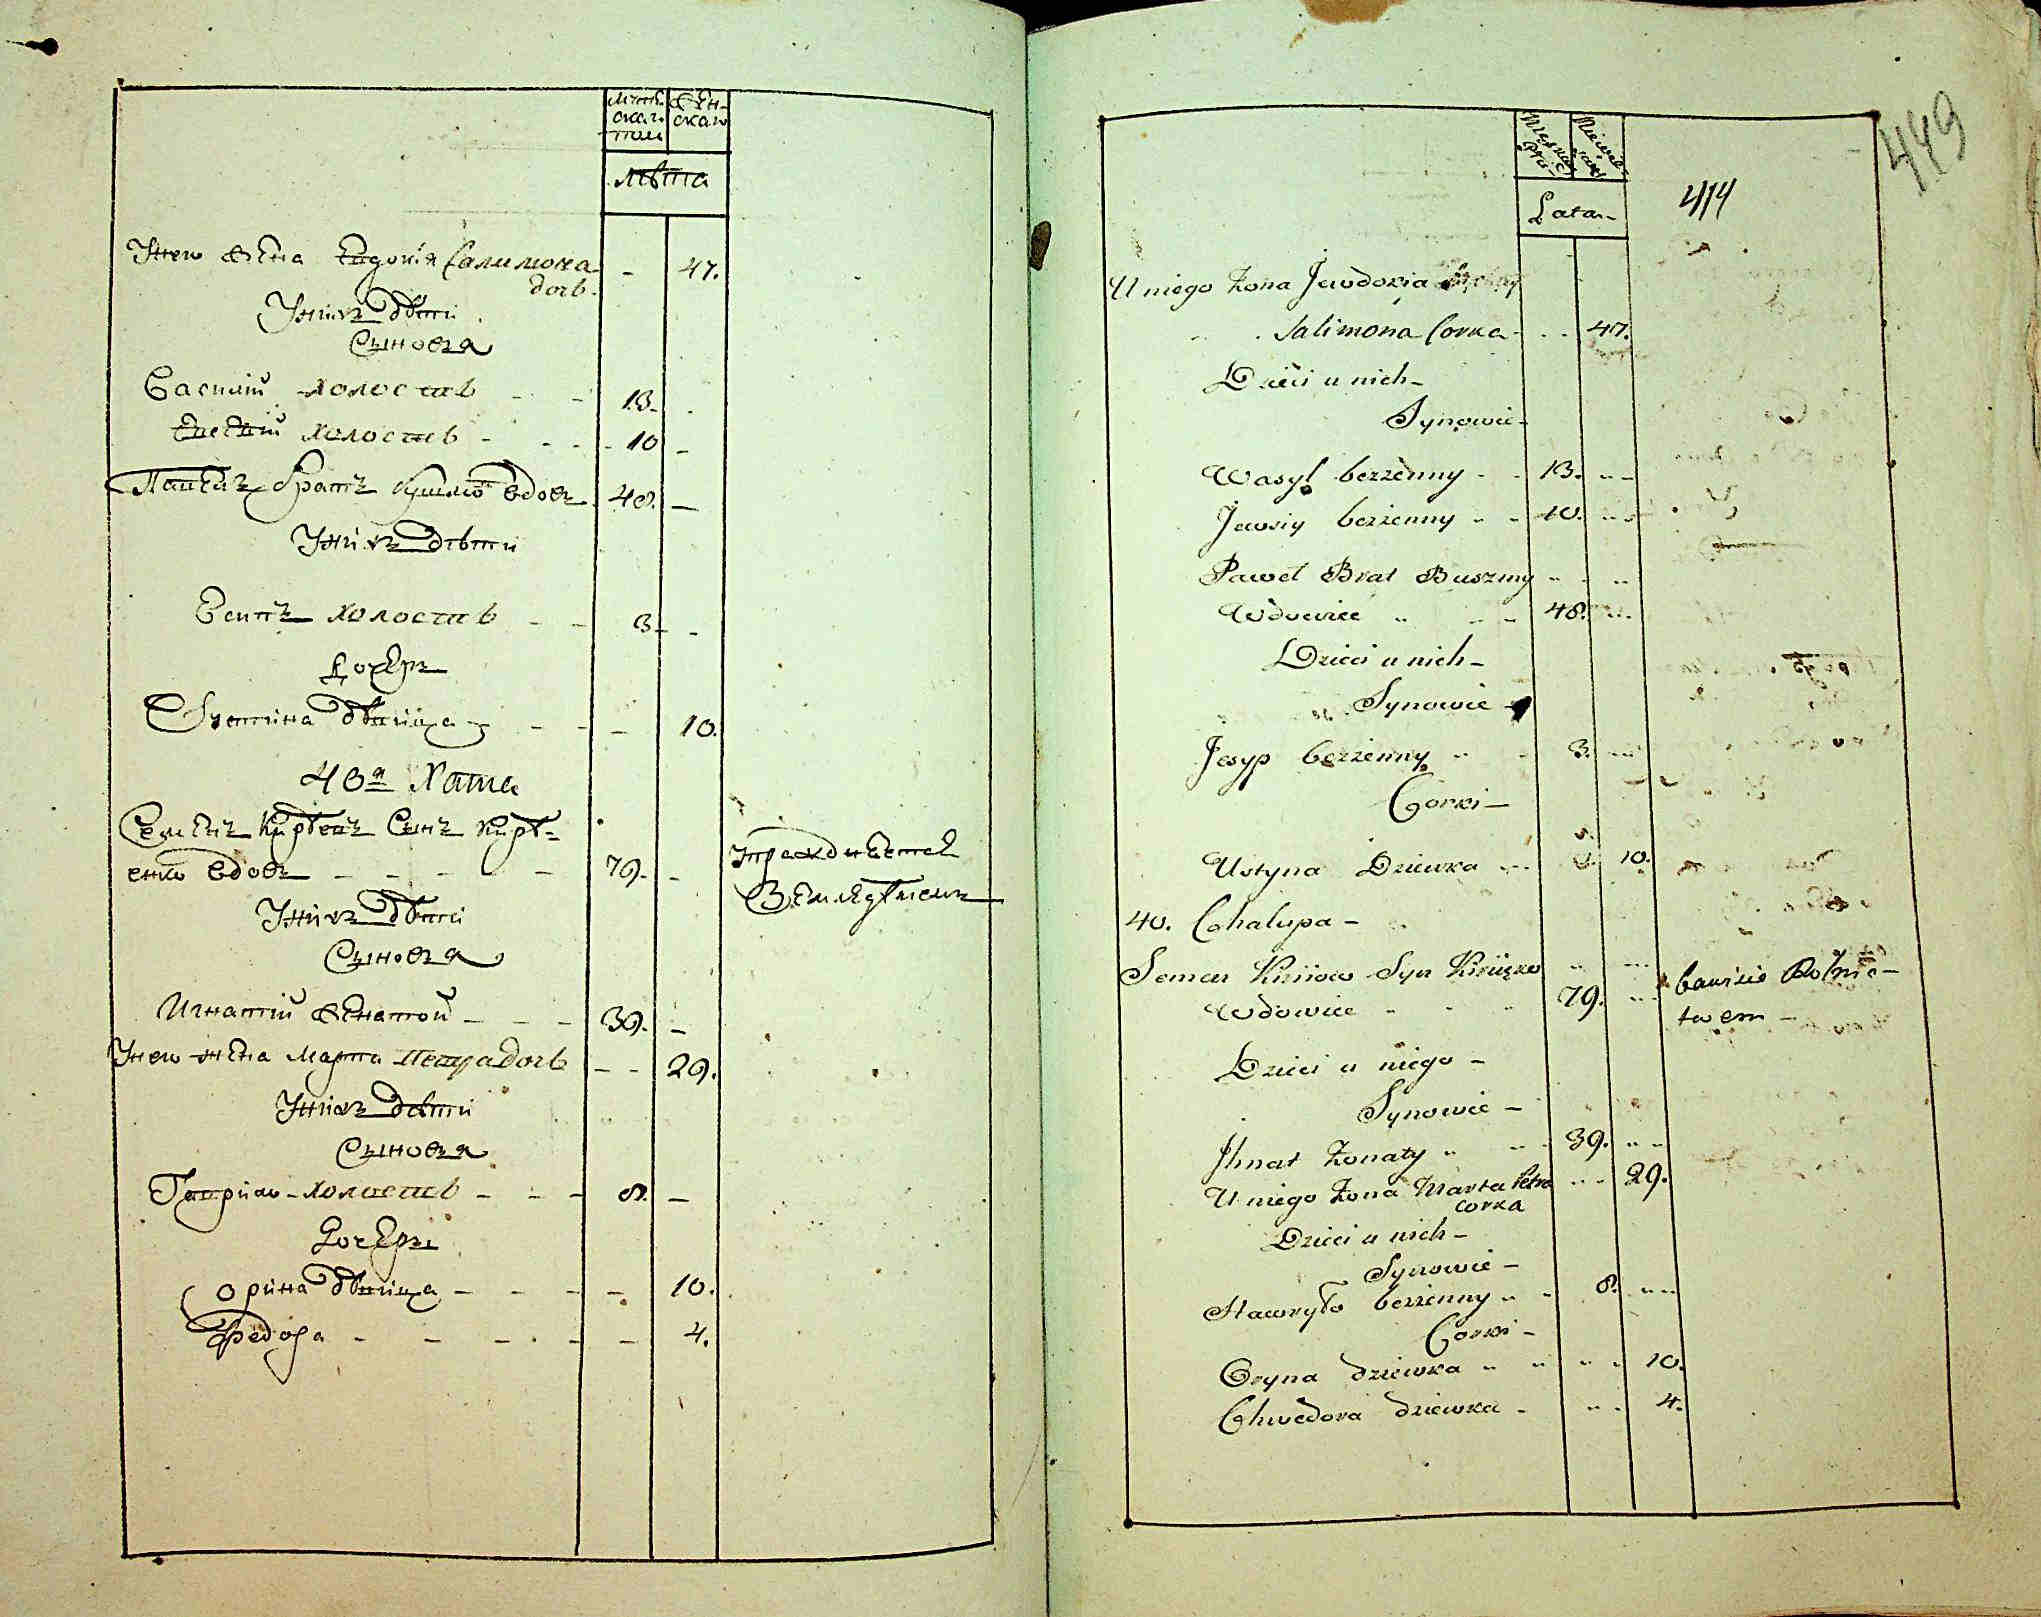 Мужескаго
Женскаго
лѣта
У него жена Евдокія Салимона 47.
дочь.
У нихъ дѣти
Сыновья
Василій холостъ 13.
Евсѣй холостъ 10
Павелъ братъ вдовъ 48.
У нихъ дѣти
Есипъ холостъ 3.
Дочерь
Устина дѣвица 10.
40я Хата
Семенъ Сынъ
енко вдовъ 79. упраждняется
Земледѣлiемъ
У нихъ дѣти
Сыновья
Игнатій женатой 39.
У него жена Марта Петра дочь 29.
У нихъ дѣти
Сыновья
Гаврило холостъ 8.
Дочери
Орина дѣвица 10.
Федора 4.
449
414
Lata
U niego Zona Jewdokia
Salimona Corka 47.
Dzieci u nich
Synowie
Wasyl bezzenny 13.
Jewsiy bezzenny 10.
Paweł Brat Buszmy
Wdowiec 48.
Dzieci u nich
Synowie
Jesyp bezzenny 3.
Corki
Ustyna Dziewka 10.
40. Chalupa
Semen Syn
Wdowiec 79. bawi sie Rolnic-
twem
Dzieci u niego
Synowie
Ihnat Zonaty 39.
U niego Zona Marta Petra 29.
corka
Dzieci u nich
Synowie
Hawryło bezzenny 8.
Corki
Oryna dziewka 10.
Chwedora dziewka 4.